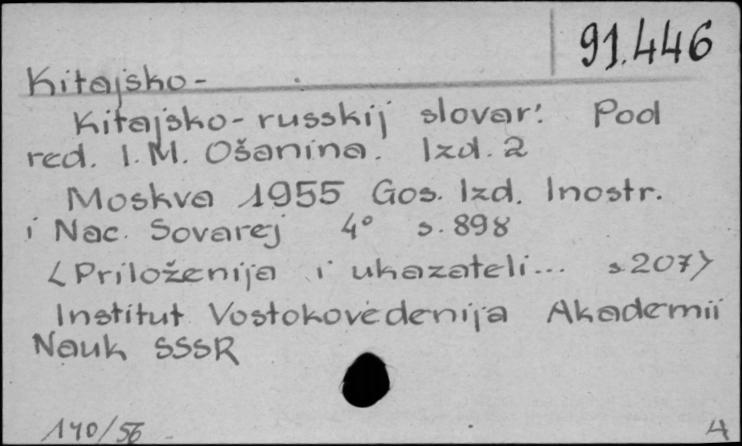 91.446
Kitajsko-
Kitajsko-russkij slovar'. Pod
red. I.M. Ošanina. Izd. 2
Moskva 1955 Gos. Izd. Inostr.
i Nac. Sovarej 4° s. 898
<Priloženija i ukazateli... s 207>
Institut Vostokovedenija Akademii
Nauk SSSR
140/56
4